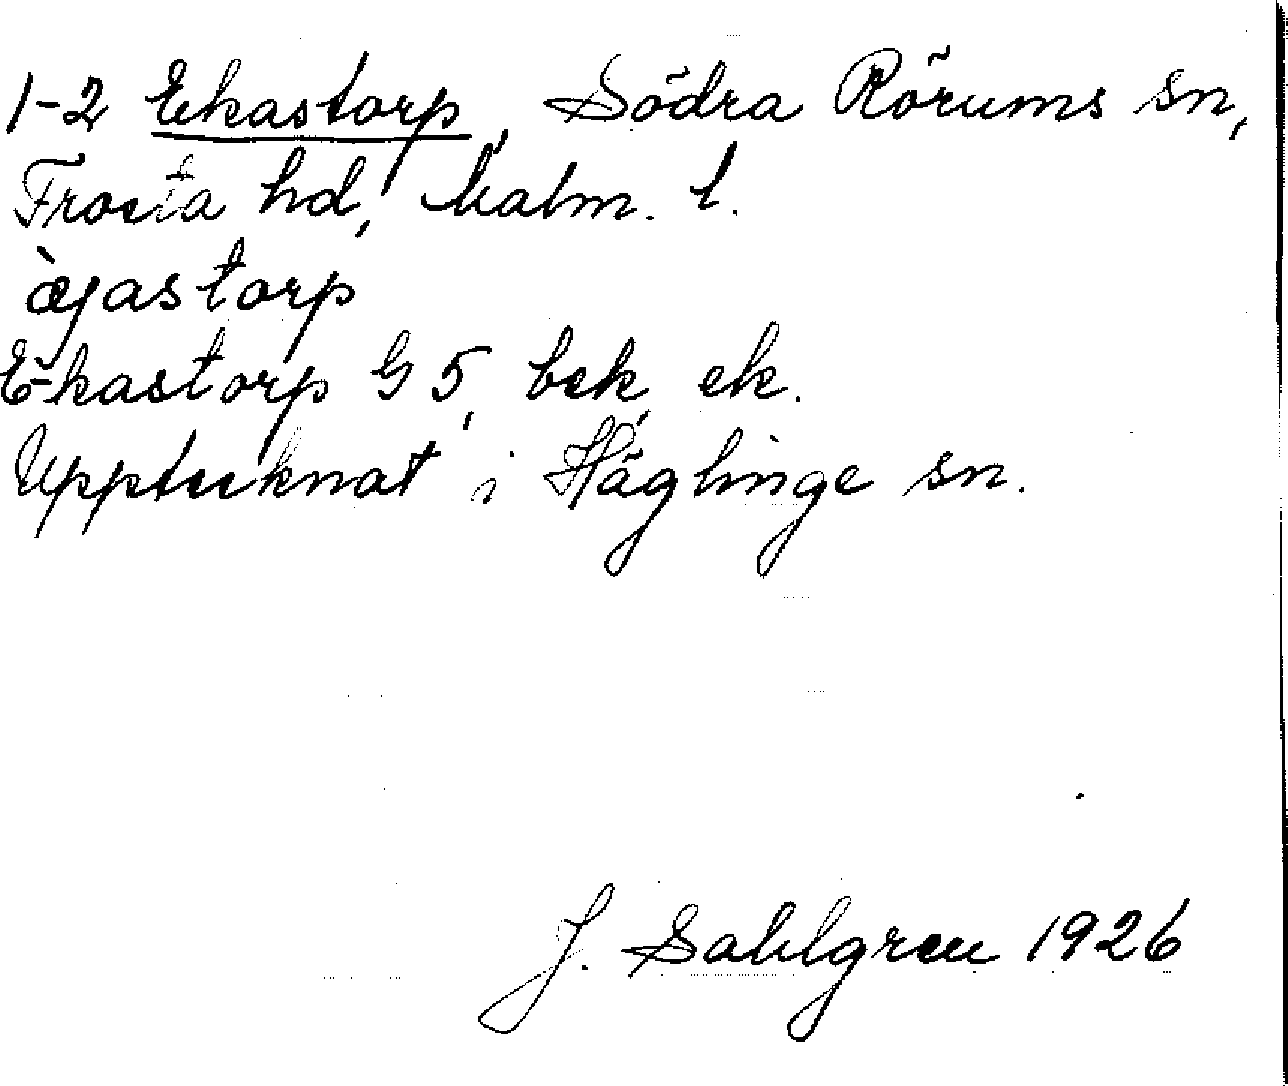 1-2 Ekastorp, Södra Rörums sn,
Frosta hd, Malm. l.
æ̀jastorp
Ekastorp G 5, bek, ek.
Upptecknat i Häglinge sn.
J. Sahlgren 1926